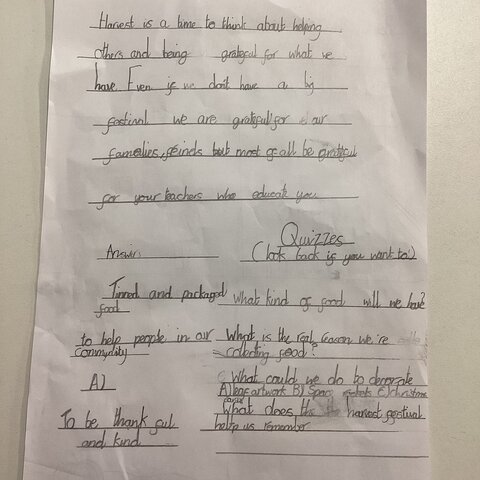 Harvest is a time to think about helping
others and being grateful for what we
have. Even if we don't have a big
festival we are grateful for our
famelies, feinds but most of all be grateful
for your teachers who educate you
Quizzes
Answers (look back if you want to)
Tinned and packaged food What kind of food will we have?
to help people in our commyunity What is the real reason we're collecting food?
A) What could we do to decorate
A) leaf artwork B) Space C) christmas
To be thank ful and kind What does the harvest festival
help us remember